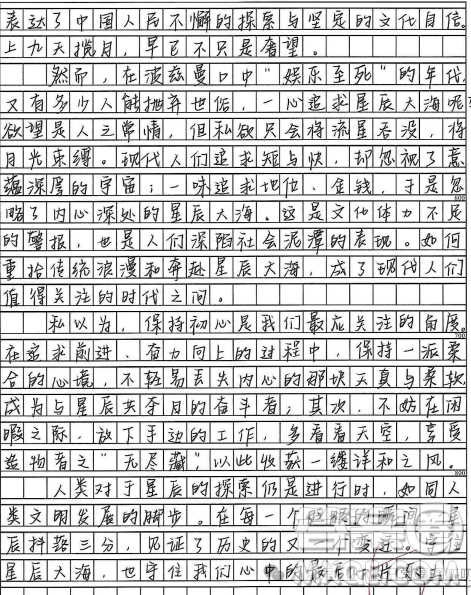 表达了中国人民不懈的探索与坚定的文化自信。
上九天揽月，早已不只是奢望。
然而，在波兹曼口中“娱乐至死”的年代，
又有多少人能抛弃世俗，一心追求星辰大海呢？
欲望是人之常情，但私欲只会将流星吞没，将
目光束缚。现代人们追求短与快，却忽视了意
蕴深厚的宇宙；一味追求地位、金钱，于是忽
600
略了内心深处的星辰大海。这是文化体力不足
的警报，也是人们深陷社会泥潭的表现。如何
重拾传统浪漫和奔赴星辰大海，成了现代人们
值得关注的时代之间。
私以为，保持初心是我们最应关注的角度。
700
在追求前进、奋力向上的过程中，保持一派柔
合的心境，不轻易丢失内心的那块天真与柔软
成为与星辰共夺目的奋斗者；其次，不妨在闲
暇之际，放下手边的工作，多看看天空，享受
造物者之“无尽藏”，以此收获一缕详和之风。
800
人类对于星辰的探索仍是进行时，如同人
类文明发展的脚步。在每一个的瞬间，星
辰抖落三分，见证了历史的又一个变迁。守住
星辰大海，也守住我们心中的最后一片